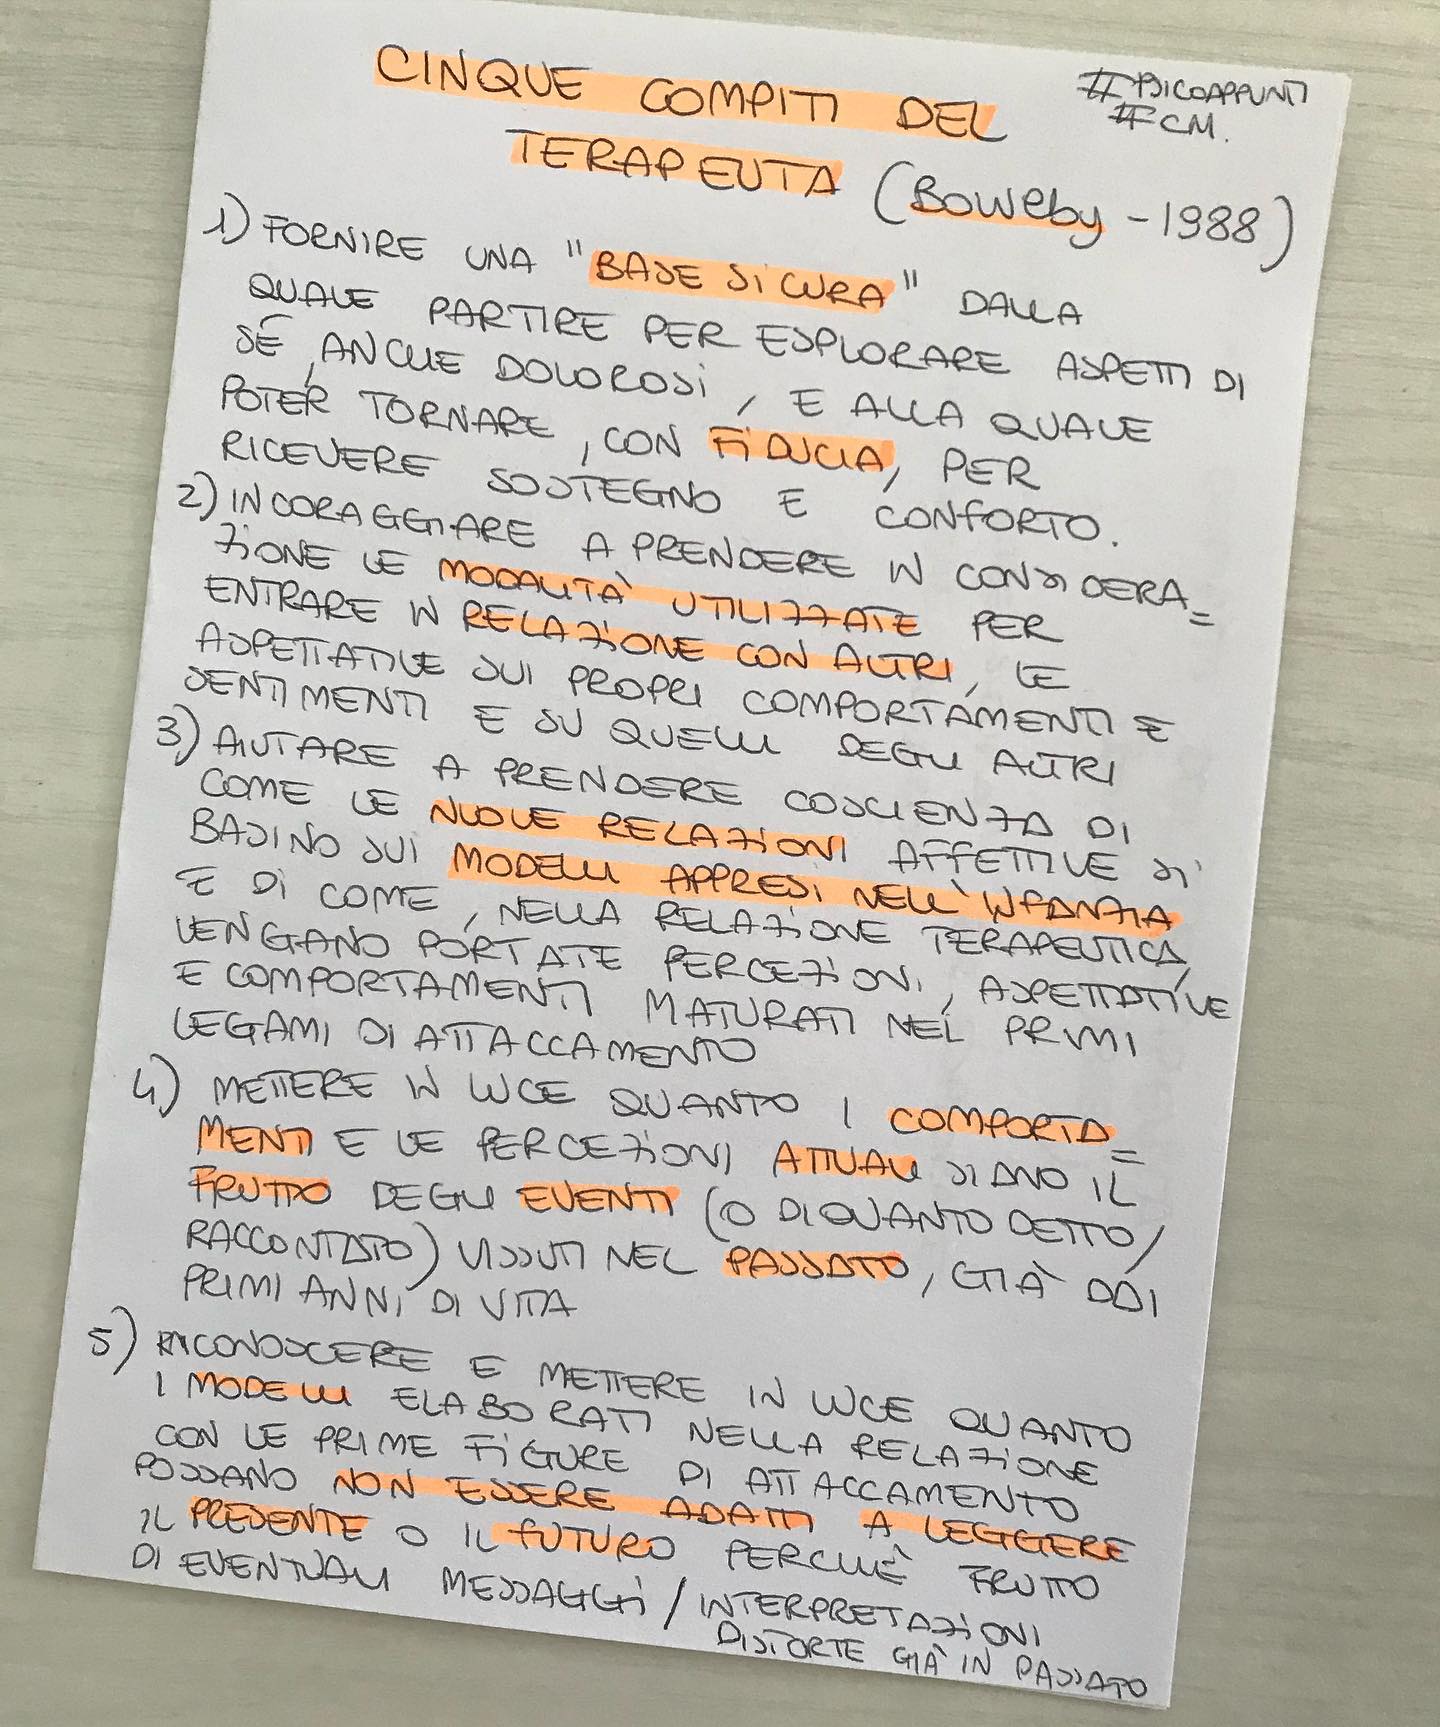 CINQUE COMPITI DEL
#PSICOAPPUNTI
#CM.
TERAPEUTA (Bowlby - 1988)
1) FORNIRE UNA "BASE SICURA" DALLA
QUALE PARTIRE PER ESPLORARE ASPETTI DI
SÉ, ANCHE DOLOROSI, E ALLA QUALE
POTER TORNARE, CON FIDUCIA, PER
RICEVERE SOSTEGNO E CONFORTO.
2) INCORAGGIARE A PRENDERE IN CONSIDERA=
ZIONE LE MODALITÀ UTILIZZATE PER
ENTRARE IN RELAZIONE CON ALTRI, LE
ASPETTATIVE SUI PROPRI COMPORTAMENTI E
SENTIMENTI E SU QUELLI DEGLI ALTRI
3) AIUTARE A PRENDERE COSCIENZA DI
COME LE NUOVE RELAZIONI AFFETTIVE SI
BASINO SUI MODELLI APPRESI NELL'INFANZIA
E DI COME, NELLA RELAZIONE TERAPEUTICA,
VENGANO PORTATE PERCEZIONI, ASPETTATIVE
E COMPORTAMENTI MATURATI NEI PRIMI
LEGAMI DI ATTACCAMENTO
4) METTERE IN LUCE QUANTO I COMPORTA=
MENTI E LE PERCEZIONI ATTUALI SIANO IL
FRUTTO DEGLI EVENTI (O DI QUANTO DETTO/
RACCONTATO) VISSUTI NEL PASSATO, GIÀ DAI
PRIMI ANNI DI VITA
5) RICONOSCERE E METTERE IN LUCE QUANTO
I MODELLI ELABORATI NELLA RELAZIONE
CON LE PRIME FIGURE DI ATTACCAMENTO
POSSANO NON ESSERE ADATTI A LEGGERE
IL PRESENTE O IL FUTURO PERCHÈ FRUTTO
DI EVENTUALI MESSAGGI/INTERPRETAZIONI
DISTORTE GIÀ IN PASSATO